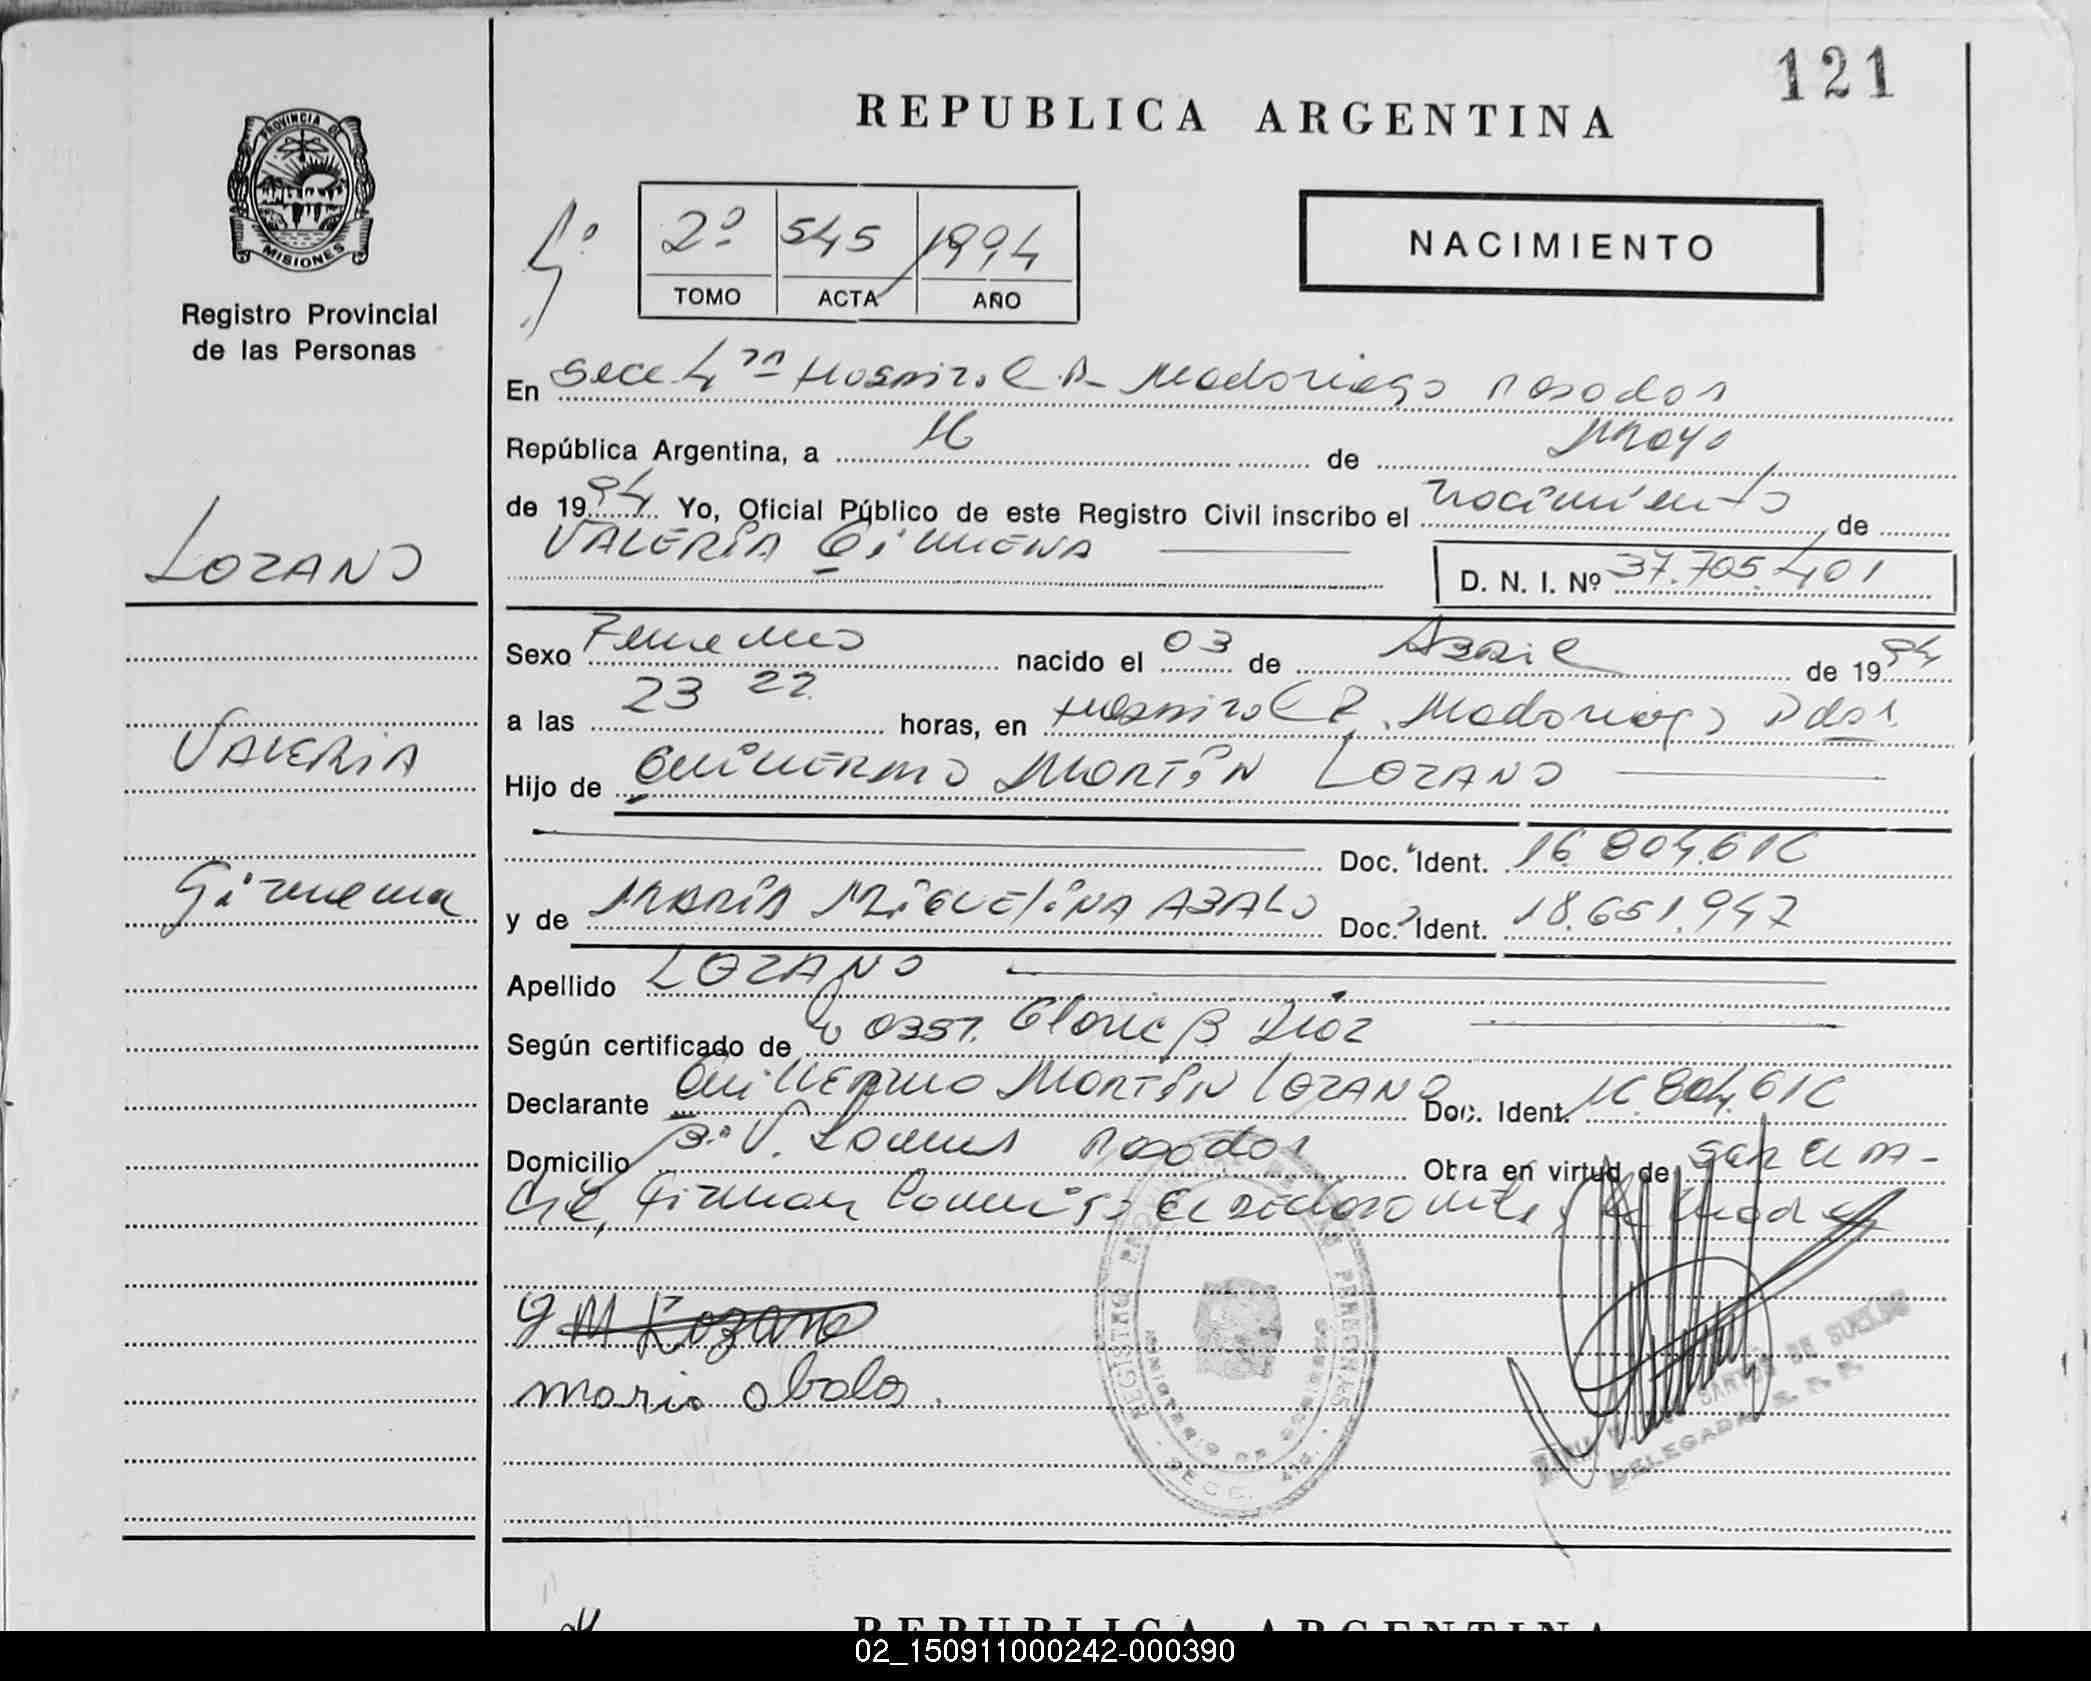 121
REPUBLICA ARGENTINA
PROVINCIA DE
MISIONES
Registro Provincial
de las Personas
4º
2º 545 1994
TOMO ACTA AÑO
NACIMIENTO
En Secc 4ta Hospital R. Madariaga Posadas
República Argentina, a 16 de Mayo
de 1994 Yo, Oficial Público de este Registro Civil inscribo el nacimiento de
VALERIA GIMENA
D. N. I. Nº 37.705.401
LOZANO
VALERIA
Gimena
Sexo Femenino nacido el 03 de ABRIL de 1994
a las 23 22 horas, en Hospital R. Madariaga Pdas.
Hijo de GUILLERMO MARTÍN LOZANO
Doc. Ident. 16.804.616
y de MARÍA MIGUELINA ABALO Doc. Ident. 18.651.947
Apellido LOZANO
Según certificado de Obst. Gloria B Diaz
Declarante GUILLERMO MARTÍN LOZANO Doc. Ident. 16.804.616
Domicilio Bº V. Posadas Obra en virtud de ser el pa-
dre, firman conmigo el declarante y la madre
G M Lozano
maria abalo.
REGISTRO PERSONAS
MINISTERIO DE GOBIERNO
SECC.
SANTOS DE SUELDO
DELEGADA
REPUBLICA ARGENTINA
02_150911000242-000390